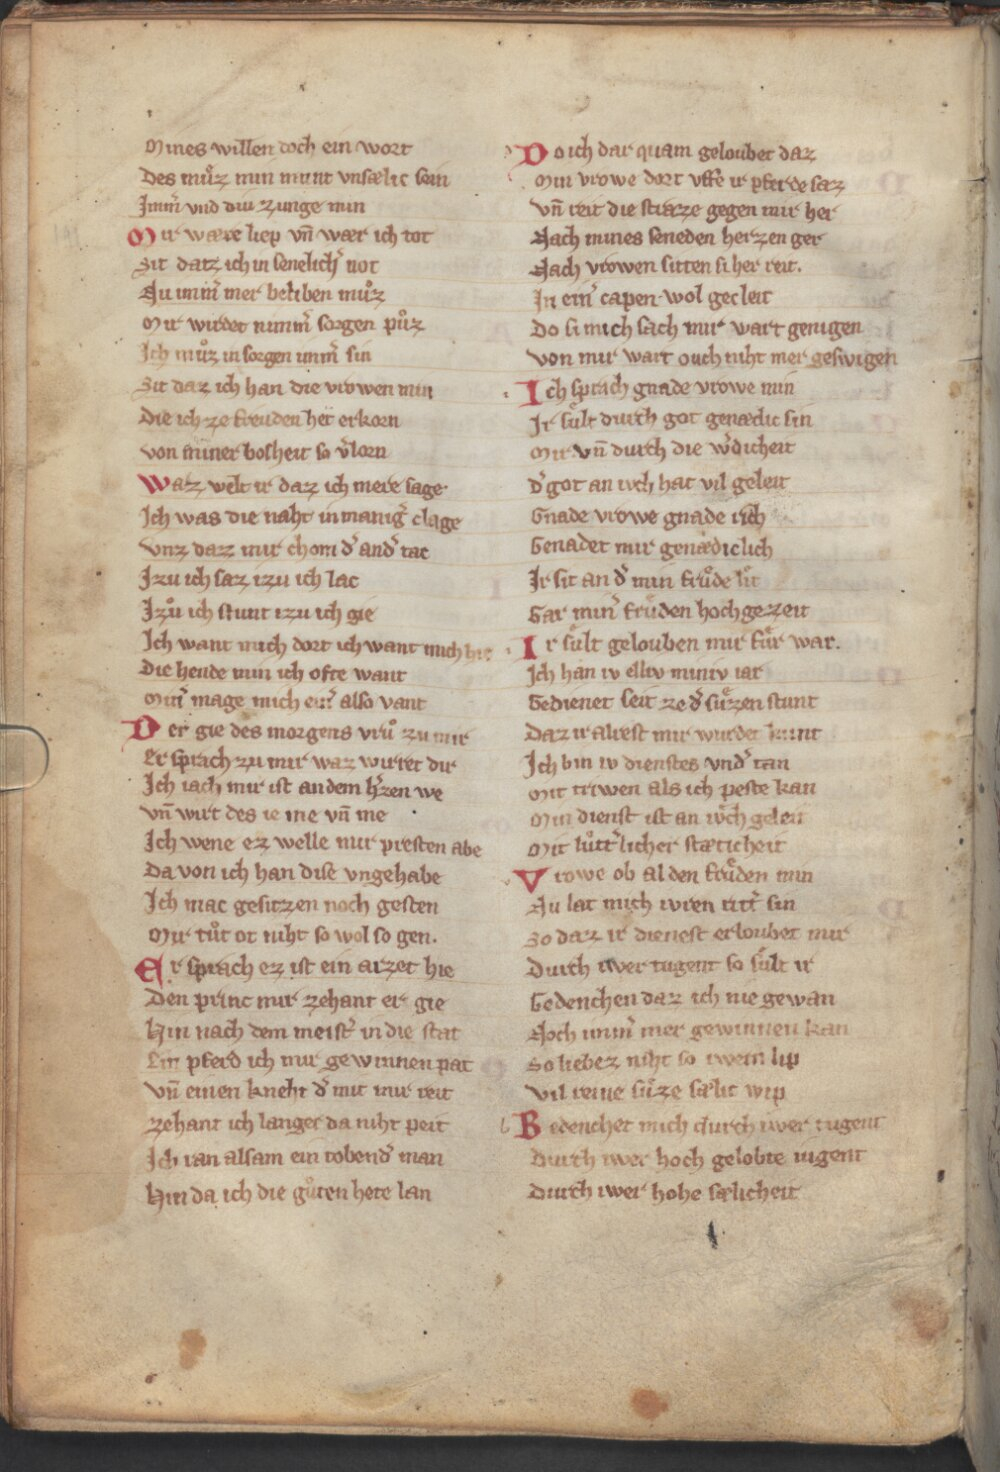 Mines willen doch ein wort
Des mu̓z min munt vnsælic sein
Imm̄ vnd diu zunge min
Mir wære liep vn̄ wær ich tot
Sit datz ich in senelich̓ not
Nu imm̓ mer beliben mu̓z
Mir wirdet nimm̓ sorgen pu̓z
Ich mu̓z in sorgen imm̓ sin
Sit daz ich han die vrowen min
Die ich ze freuden het erkorn
von miner bosheit so v̓lorn
Waz welt ir daz ich mere sage
Ich was die naht in manig̓ clage
vnz daz mir chom d̓ and̓ tac
Izu ich saz izu ich lac
Izu̓ ich stunt izu ich gie
Ich want mich dort ich want mich hie
Die hende min ich ofte want
Min̓ mage mich ein̓ also vant
Der gie des morgens vru̓ zu mir
Er sprach zu mir waz wirret dir
Ich iach mir ist an dem h̓zen we
vn̄ wirt des ie me vn̄ me
Ich wene ez welle mir presten abe
Da von ich han dise vngehabe
Ich mac gesitzen noch gesten
Mir tu̓t ot niht so wol so gen.
Er sprach ez ist ein arzet hie
Den princ mir zehant er gie
Hin nach dem meist̓ in die stat
Ein pferd ich mir gewinnen pat
vn̄ einen kneht d̓ mit mir reit
zehant ich langer da niht peit
Ich ran alsam ein tobend̓ man
Hin da ich die gu̓ten hete lan
Do ich dar quam geloubet daz
Min vrowe dort vffe ir pferde saz
vn̄ reit die straze gegen mir her
Nach mines seneden herzen ger
Nach vrowen sitten si her reit.
In ein̓ capen wol gecleit
Do si mich sach mir wart genigen
von mir wart ouch niht mer geswigen
Ich sprach gnade vrowe min
Ir sult durch got genædic sin
Mir vn̄ durch die w̓dicheit
d̓ got an iuch hat vil geleit
Gnade vrowe gnade rich
Genadet mir genædiclich
Ir sit an d̓ min fru̓de lit
Gar min̓ fru̓den hochgezeit
Ir sult gelouben mir fu̓r war.
Ich han iv elliv miniv iar
Gedienet seit ze d̓ su̓zen stunt
Daz ir alrest mir wurdet kunt
Ich bin iv dienstes vnd̓ tan
Mit triwen als ich peste kan
Min dienst ist an iv̓ch geleit
Mit lu̓tt̓licher stæticheit
Vrowe ob al den fru̓den min
Nu lat mich iwren ritt̓ sin
So daz ir dienest erloubet mir
Durch iwer tugent so sult ir
Gedenchen daz ich nie gewan
Noch imm̓ mer gewinnen kan
So liebez niht so iwern lip
Vil reine su̓ze sælic wip
Bedenchet mich durch iwer tugent
Durch iwer hoch gelobte iugent
Durch iwer hohe sælicheit